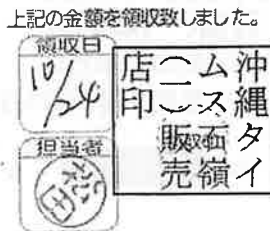 上記の金額を領収致しました。
領収日
10/24
担当者
沖縄タイ
ムス石嶺
（）販売
店印